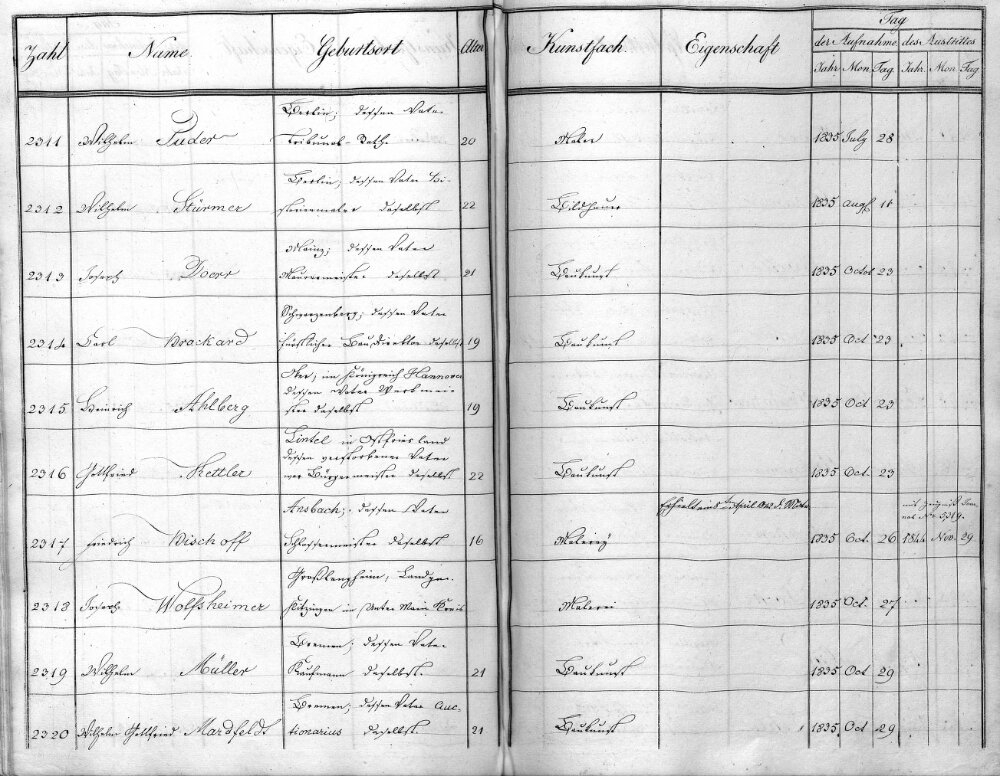 Zahl Name Geburtsort Alter Kunstfach. Eigenschaft Tag
der Aufnahme des Austrittes
Jahr Mon Tag Jahr. Mon Tag
Berlin; dessen Vater
2311 Wilhelm Tribunal-Rath. 20 Maler 1835 July 28
Berlin; dessen Vater Hi-
2312 Wilhelm Stürmer storienmaler daselbst 22 Bildhauer 1835 Aug 11
Mainz; dessen Vater
2313 Joseph Doerr Maurermeister daselbst 21 Baukunst 1835 Octob 23
Schwarzenberg; dessen Vater
2314 Carl Brockard fürstlicher Baudirektor daselbst 19 Baukunst 1835 Oct 23
im Königreich Hannover
dessen Vater Werkmei-
2315 Heinrich Ahlberg ster daselbst 19 Baukunst 1835 Oct 23
Lintel in Ostfriesland
dessen verstorbener Vater
2316 Gottfried Kettler war Bürgermeister daselbst 22 Baukunst 1835 Oct. 23
Ansbach; dessen Vater April
No 5319.
2317 Friedrich Bischoff Schlossermeister daselbst 16 Malerey 1835 Oct. 26 1844 Nov. 29
Großlangheim; Landger.
2318 Joseph Wolfsheimer Kitzingen im Unter Main Kreis Malerei 1835 Oct. 27
Bremen; dessen Vater
2319 Wilhelm Müller Kaufmann daselbst. 21 Baukunst 1835 Oct 29
Bremen; dessen Vater Auc-
2320 Wilhelm Gottfried Mardfeldt tionarius daselbst 21 Baukunst 1835 Oct 29